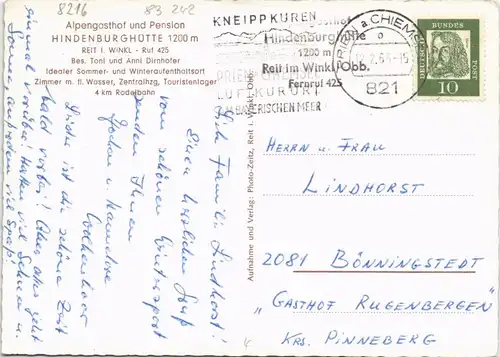 8216
83 242
Alpengasthof und Pension
HINDENBURGHÜTTE 1200 m
REIT i. WINKL - Ruf 425
Bes. Toni und Anni Dirnhofer
Idealer Sommer- und Winteraufenthaltsort
Zimmer m. fl. Wasser, Zentralhzg. Touristenlager
4 km Rodelbahn
KNEIPPKUREN
Hindenburghütte
1200 m
Reit im Winkl/Obb.
Fernruf 425
PRIEN CHIEMSEE
LUFTKURORT
AM BAYERISCHEN MEER
PRIEN a. CHIEMSEE
821
DEUTSCHE BUNDESPOST
10
Aufnahme und Verlag: Photo-Zeitz, Reit i. Winkl - Obb.
HERRN u. FRAU
LINDHORST
2081 BÖNNINGSTEDT
„GASTHOF RUGENBERGEN"
KRS. PINNEBERG
Lieb. Familie Lindhorst!
Einen herzlichen Gruß
vom schönen Wintersport
senden Ihnen
Jochen u. Hannelore
Leider ist die schöne Zeit
bald vorbei! Aber alles geht
einmal vorüber! Hatten viel Schnee u.
Sonne, außerdem viel Spaß!